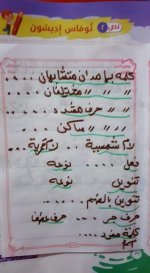 نص ٢ توماس إديسون
كلمة بها مدان متشابهان ....
〃 〃 〃 مختلفان ....
〃 〃 حرف ممدود ....
〃 〃 〃 ساكن ....
لام شمسية .... لام قمرية ....
فعل .... نوعه
تنوين .... نوعه
تنوين بالضم ....
حرف جر .... حرف عطف
كلمة مفرد ....